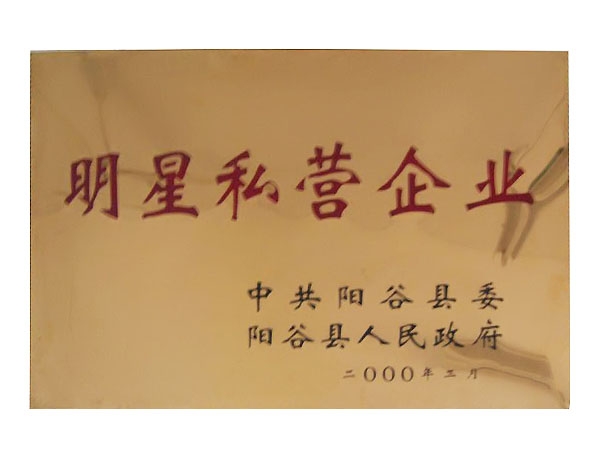 明星私营企业
中共阳谷县委
阳谷县人民政府
二000年三月